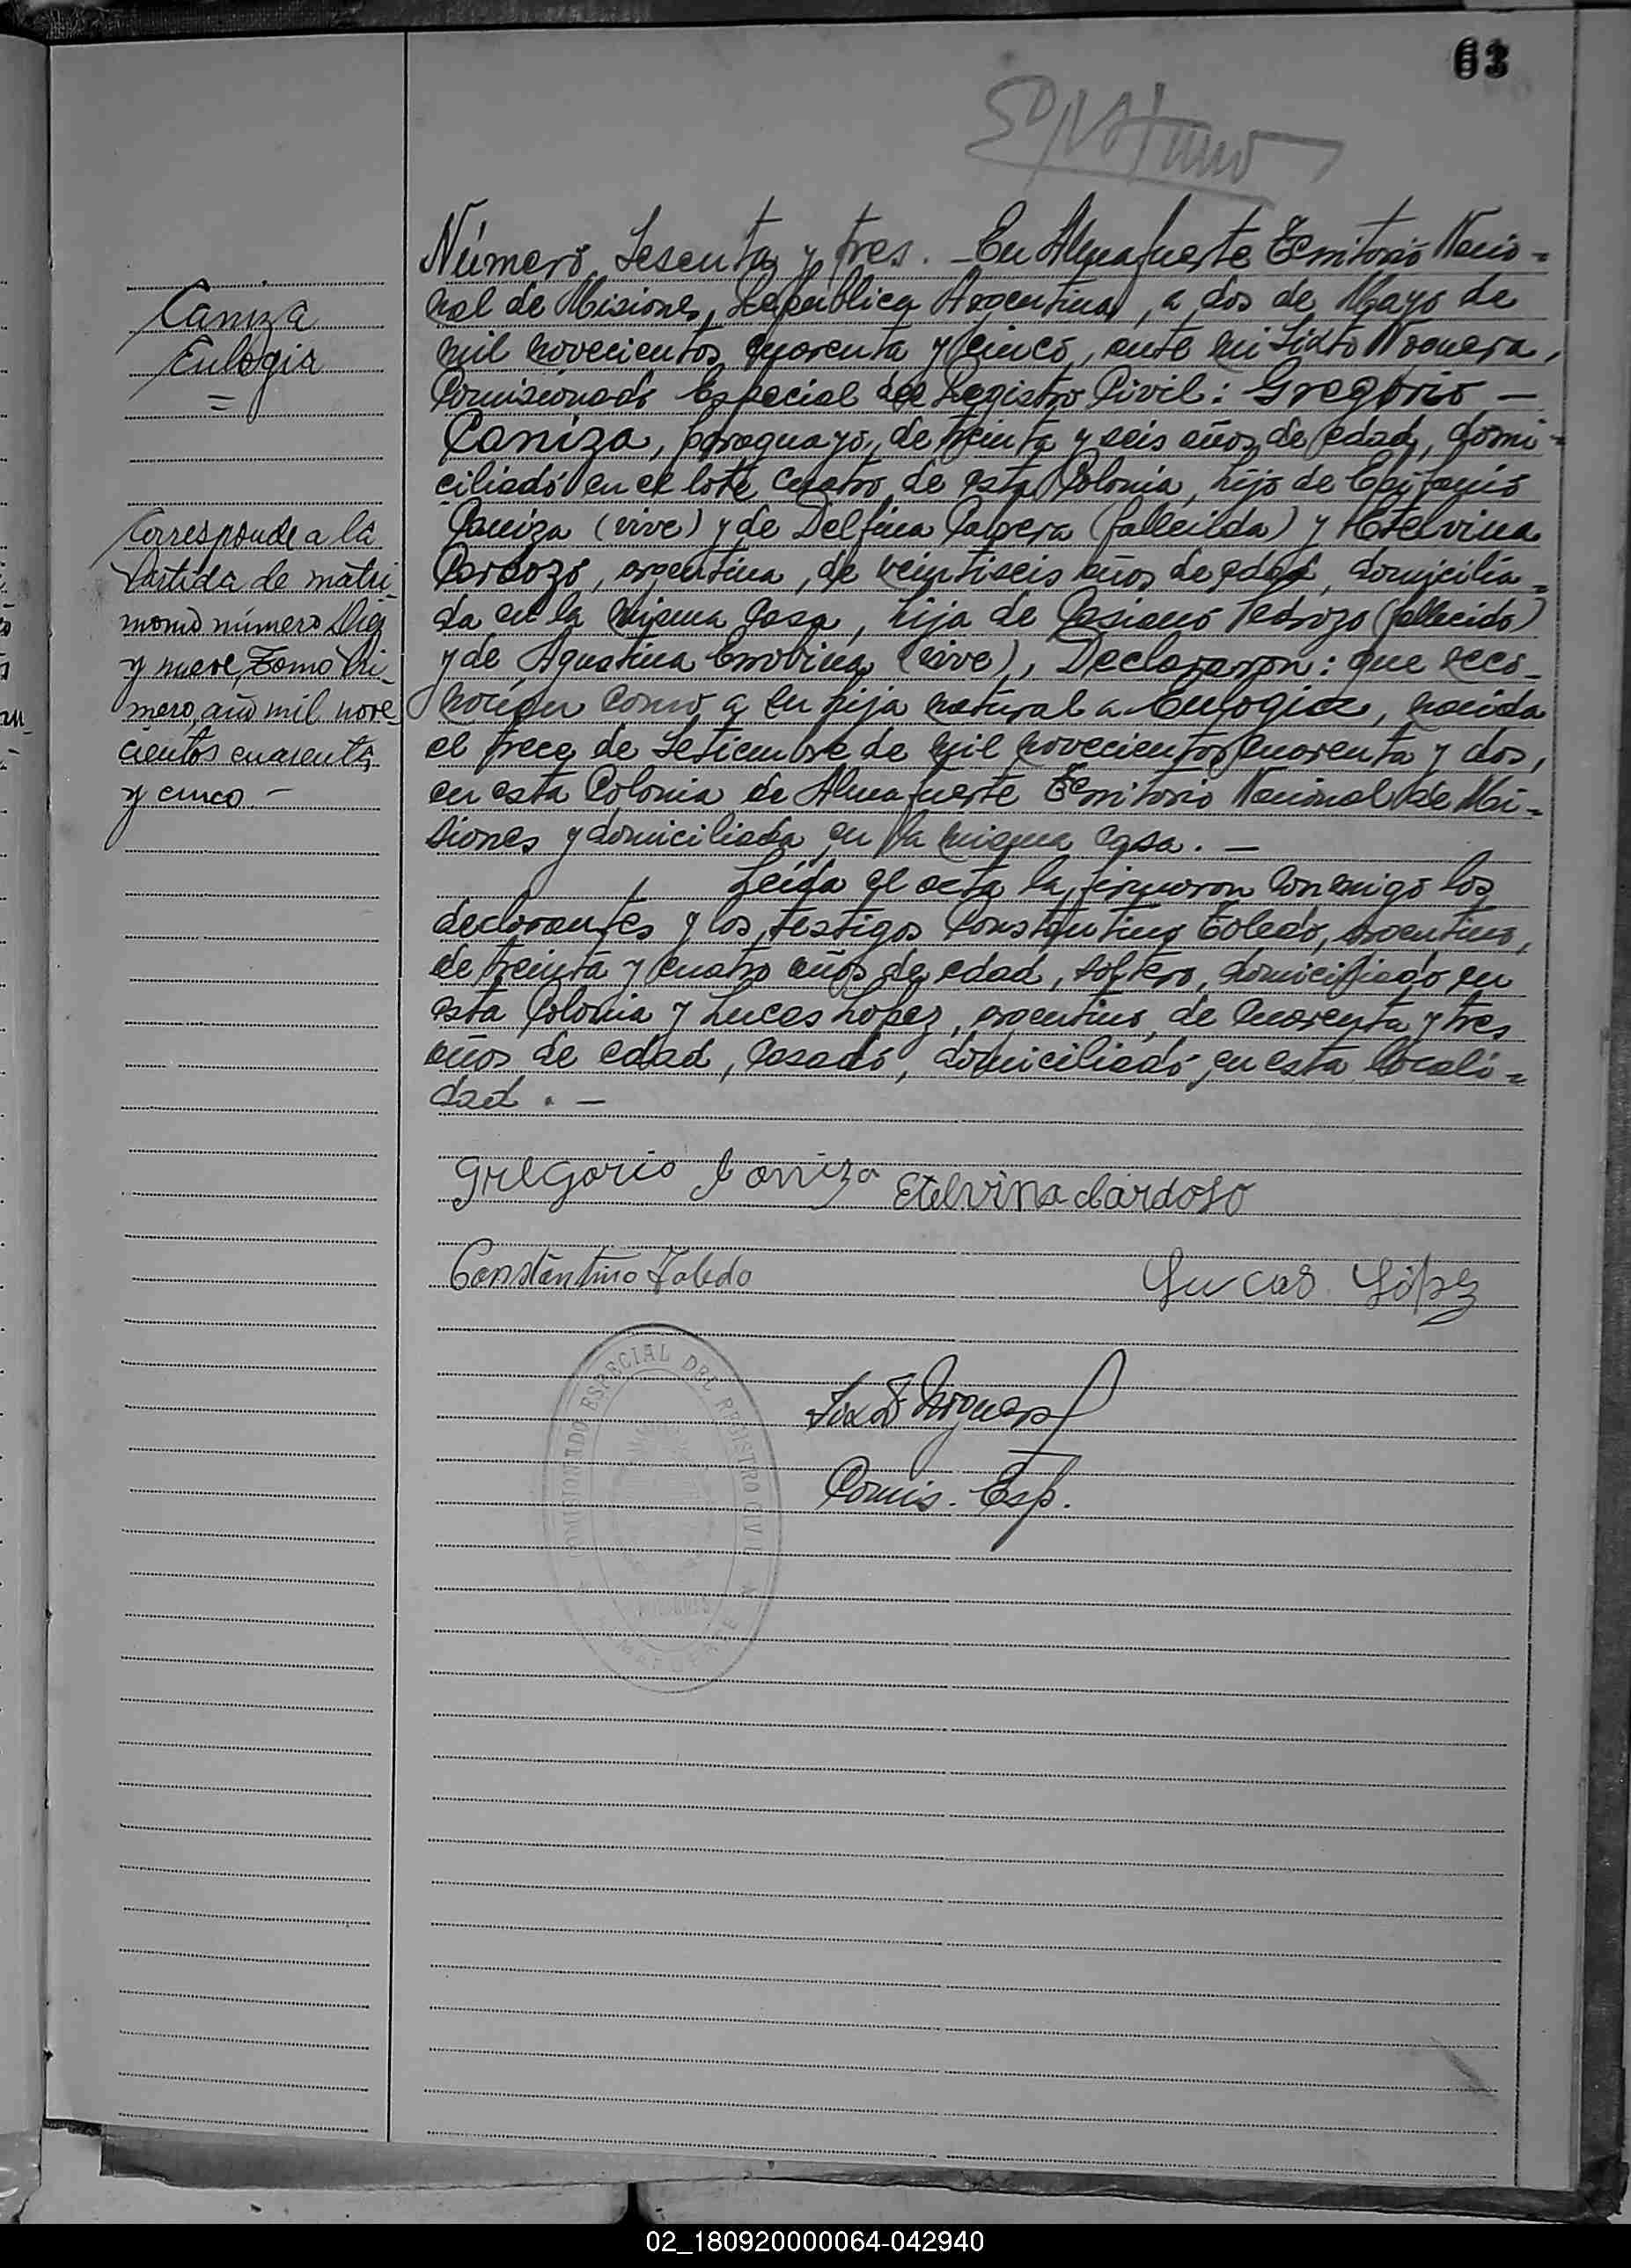 63
Caniza
Eulogia
=
Corresponde a la
Partida de matri-
monio número Diez
y nueve, Tomo Pri-
mero, año mil nove
cientos cuarenta
y cinco.-
Número Sesenta y tres.- En Almafuerte Territorio Nacio=
nal de Misiones, República Argentina, a dos de Mayo de
mil novecientos cuarenta y cinco, ante mi Sixto Noguera,
Comisionado Especial del Registro Civil: Gregorio -
Caniza, paraguayo, de treinta y seis años de edad, domi=
ciliado en el lote cuatro de esta Colonia, hijo de Epifanio
Caniza (vive) y de Delfina (fallecida) y Etelvina
Cardozo, argentina, de veintiseis años de edad, domicilia=
da en la misma casa, hija de Casiano (fallecido)
y de Agustina (vive), Declararon: que reco-
nocían como a su hija natural a Eulogia, nacida
el trece de Setiembre de mil novecientos cuarenta y dos,
en esta Colonia de Almafuerte Territorio Nacional de Mi=
siones y domiciliada en la misma casa.-
Leída el acta la firmaron conmigo los
declarantes y los testigos Constantino Toledo, argentino,
de treinta y cuatro años de edad, soltero, domiciliado en
esta Colonia y Lucas Lopez, argentino, de cuarenta y tres
años de edad, casado, domiciliado en esta locali=
dad.-
Gregorio Caniza Etelvina Cardoso
Constantino Toledo Lucas López
COMISIONADO ESPECIAL DEL REGISTRO CIVIL
ALMAFUERTE
MISIONES
Sixto Noguera
Comis. Esp.
02_180920000064-042940